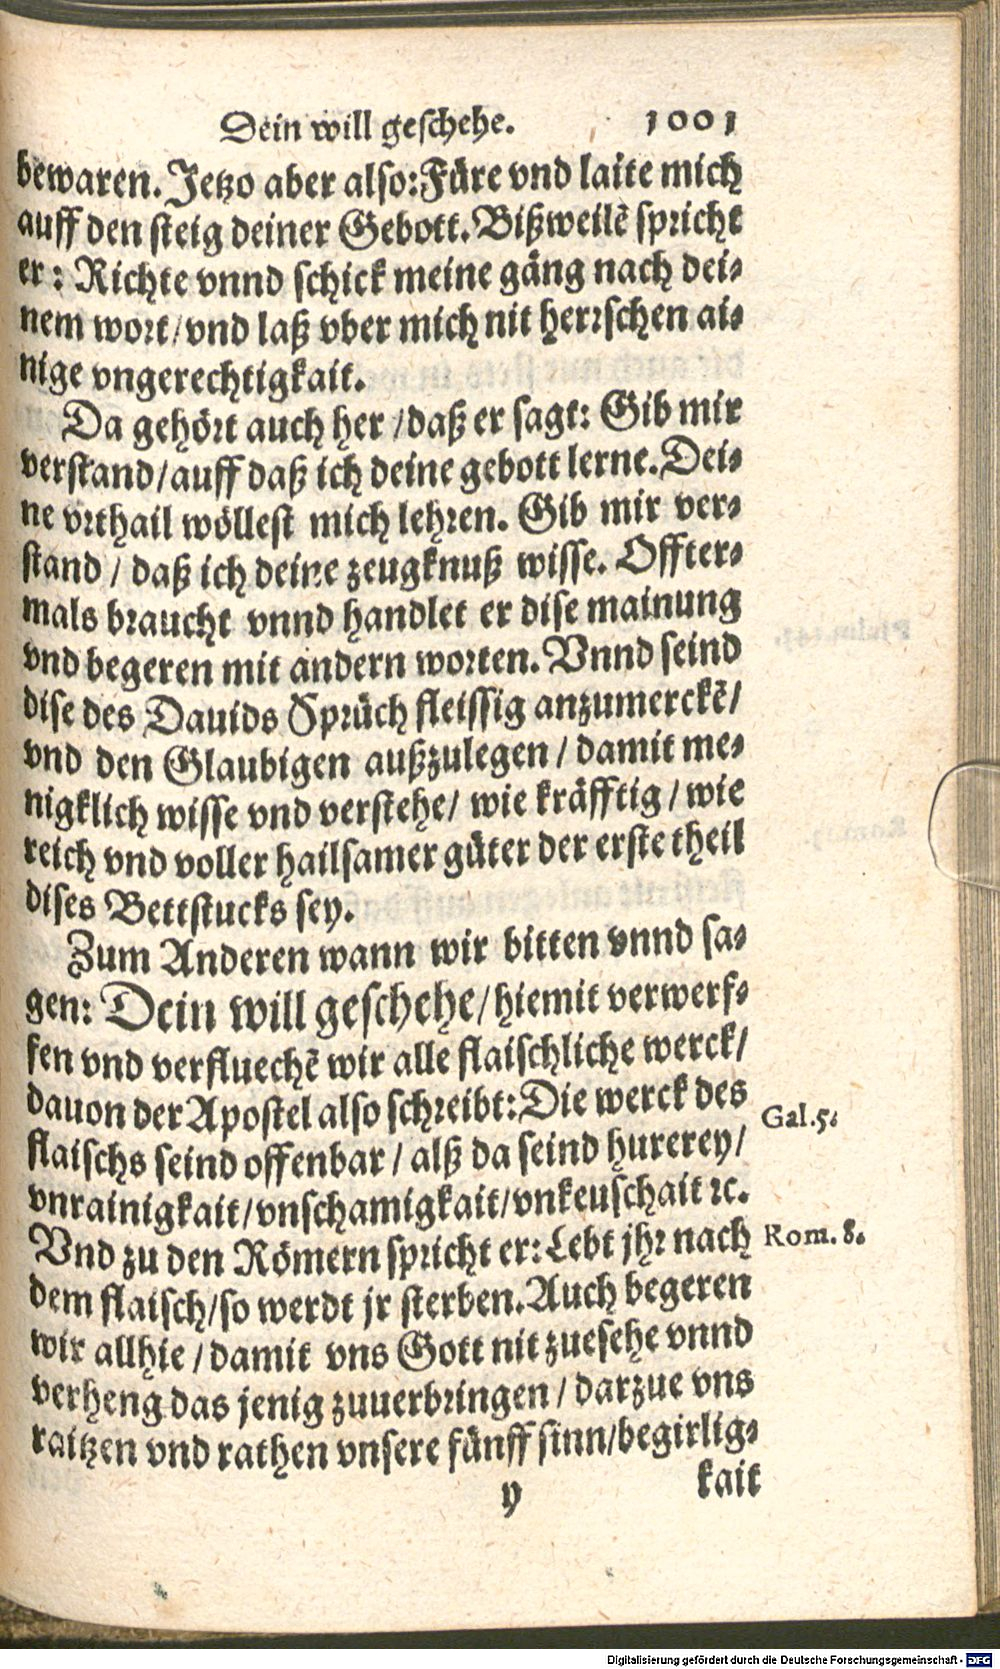 Dein will geschehe. 1001
bewaren. Jetzo aber also: Füre vnd laite mich
auff den steig deiner Gebott. Bißweilē spricht
er: Richte vnnd schick meine gäng nach dei-
nem wort/ vnd laß vber mich nit herrschen ai-
nige vngerechtigkait.
Da gehört auch her / daß er sagt: Gib mir
verstand/ auff daß ich deine gebott lerne. Dei-
ne vrthail wöllest mich lehren. Gib mir ver-
stand / daß ich deine zeugknuß wisse. Offter-
mals braucht vnnd handlet er dise mainung
vnd begeren mit andern worten. Vnnd seind
dise des Dauids Sprüch fleissig anzumerckē/
vnd den Glaubigen außzulegen / damit me-
nigklich wisse vnd verstehe/ wie kräfftig / wie
reich vnd voller hailsamer güter der erste theil
dises Bettstucks sey.
Zum Anderen wann wir bitten vnnd sa-
gen: Dein will geschehe/ hiemit verwerf-
fen vnd verfluechē wir alle flaischliche werck/
dauon der Apostel also schreibt: Die werck des
Gal.5.
flaischs seind offenbar / alß da seind hurerey/
vnrainigkait/ vnschamigkait/ vnkeuschait ꝛc.
Vnd zu den Römern spricht er: Lebt jhr nach
Rom. 8.
dem flaisch/ so werdt jr sterben. Auch begeren
wir allhie / damit vns Gott nit zuesehe vnnd
verheng das jenig zuuerbringen / darzue vns
raitzen vnd rathen vnsere fünff sinn/ begirlig-
y kait
Digitalisierung gefördert durch die Deutsche Forschungsgemeinschaft - DFG